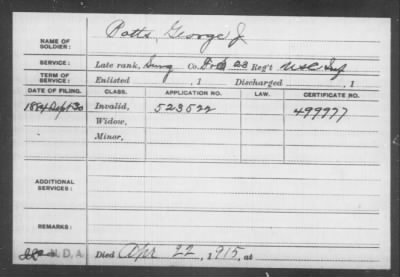 NAME OF SOLDIER: Potts, George J.
SERVICE: Late rank, Surg Co. 23 Reg't USC Inf
TERM OF SERVICE: Enlisted , 1 Discharged , 1
DATE OF FILING. CLASS. APPLICATION NO. LAW. CERTIFICATE NO.
1884 Sept 30 Invalid, 523522 499977
Widow,
Minor,
ADDITIONAL SERVICES:
REMARKS:
N.D.A. Died Apr 22, 1915, at